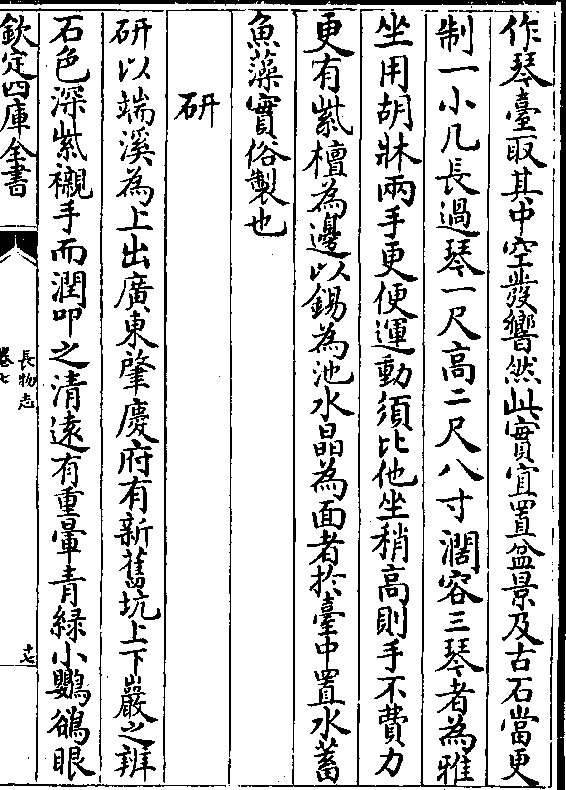 作琴臺取其中空發響然此實宜置盆景及古石當更
制一小几長過琴一尺高二尺八寸濶容三琴者為雅
坐用胡牀兩手更便運動須比他坐稍高則手不費力
更有紫檀為邊以錫為池水晶為面者於臺中置水蓄
魚藻實俗製也
研
研以端溪為上出廣東肇慶府有新舊坑上下巖之辨
石色深紫襯手而潤叩之清遠有重暈青綠小鸜鵒眼
欽定四庫全書
長物志
卷七
十七